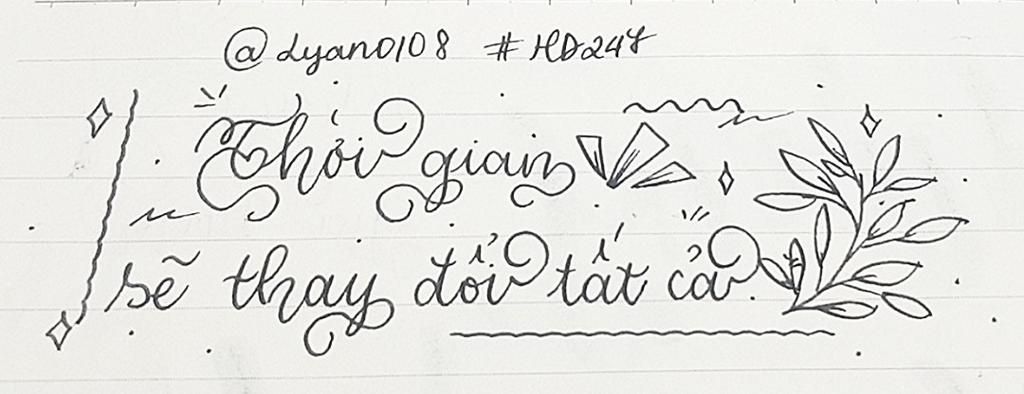 @dyan0108 #HD247
Thời gian
sẽ thay đổi tất cả.